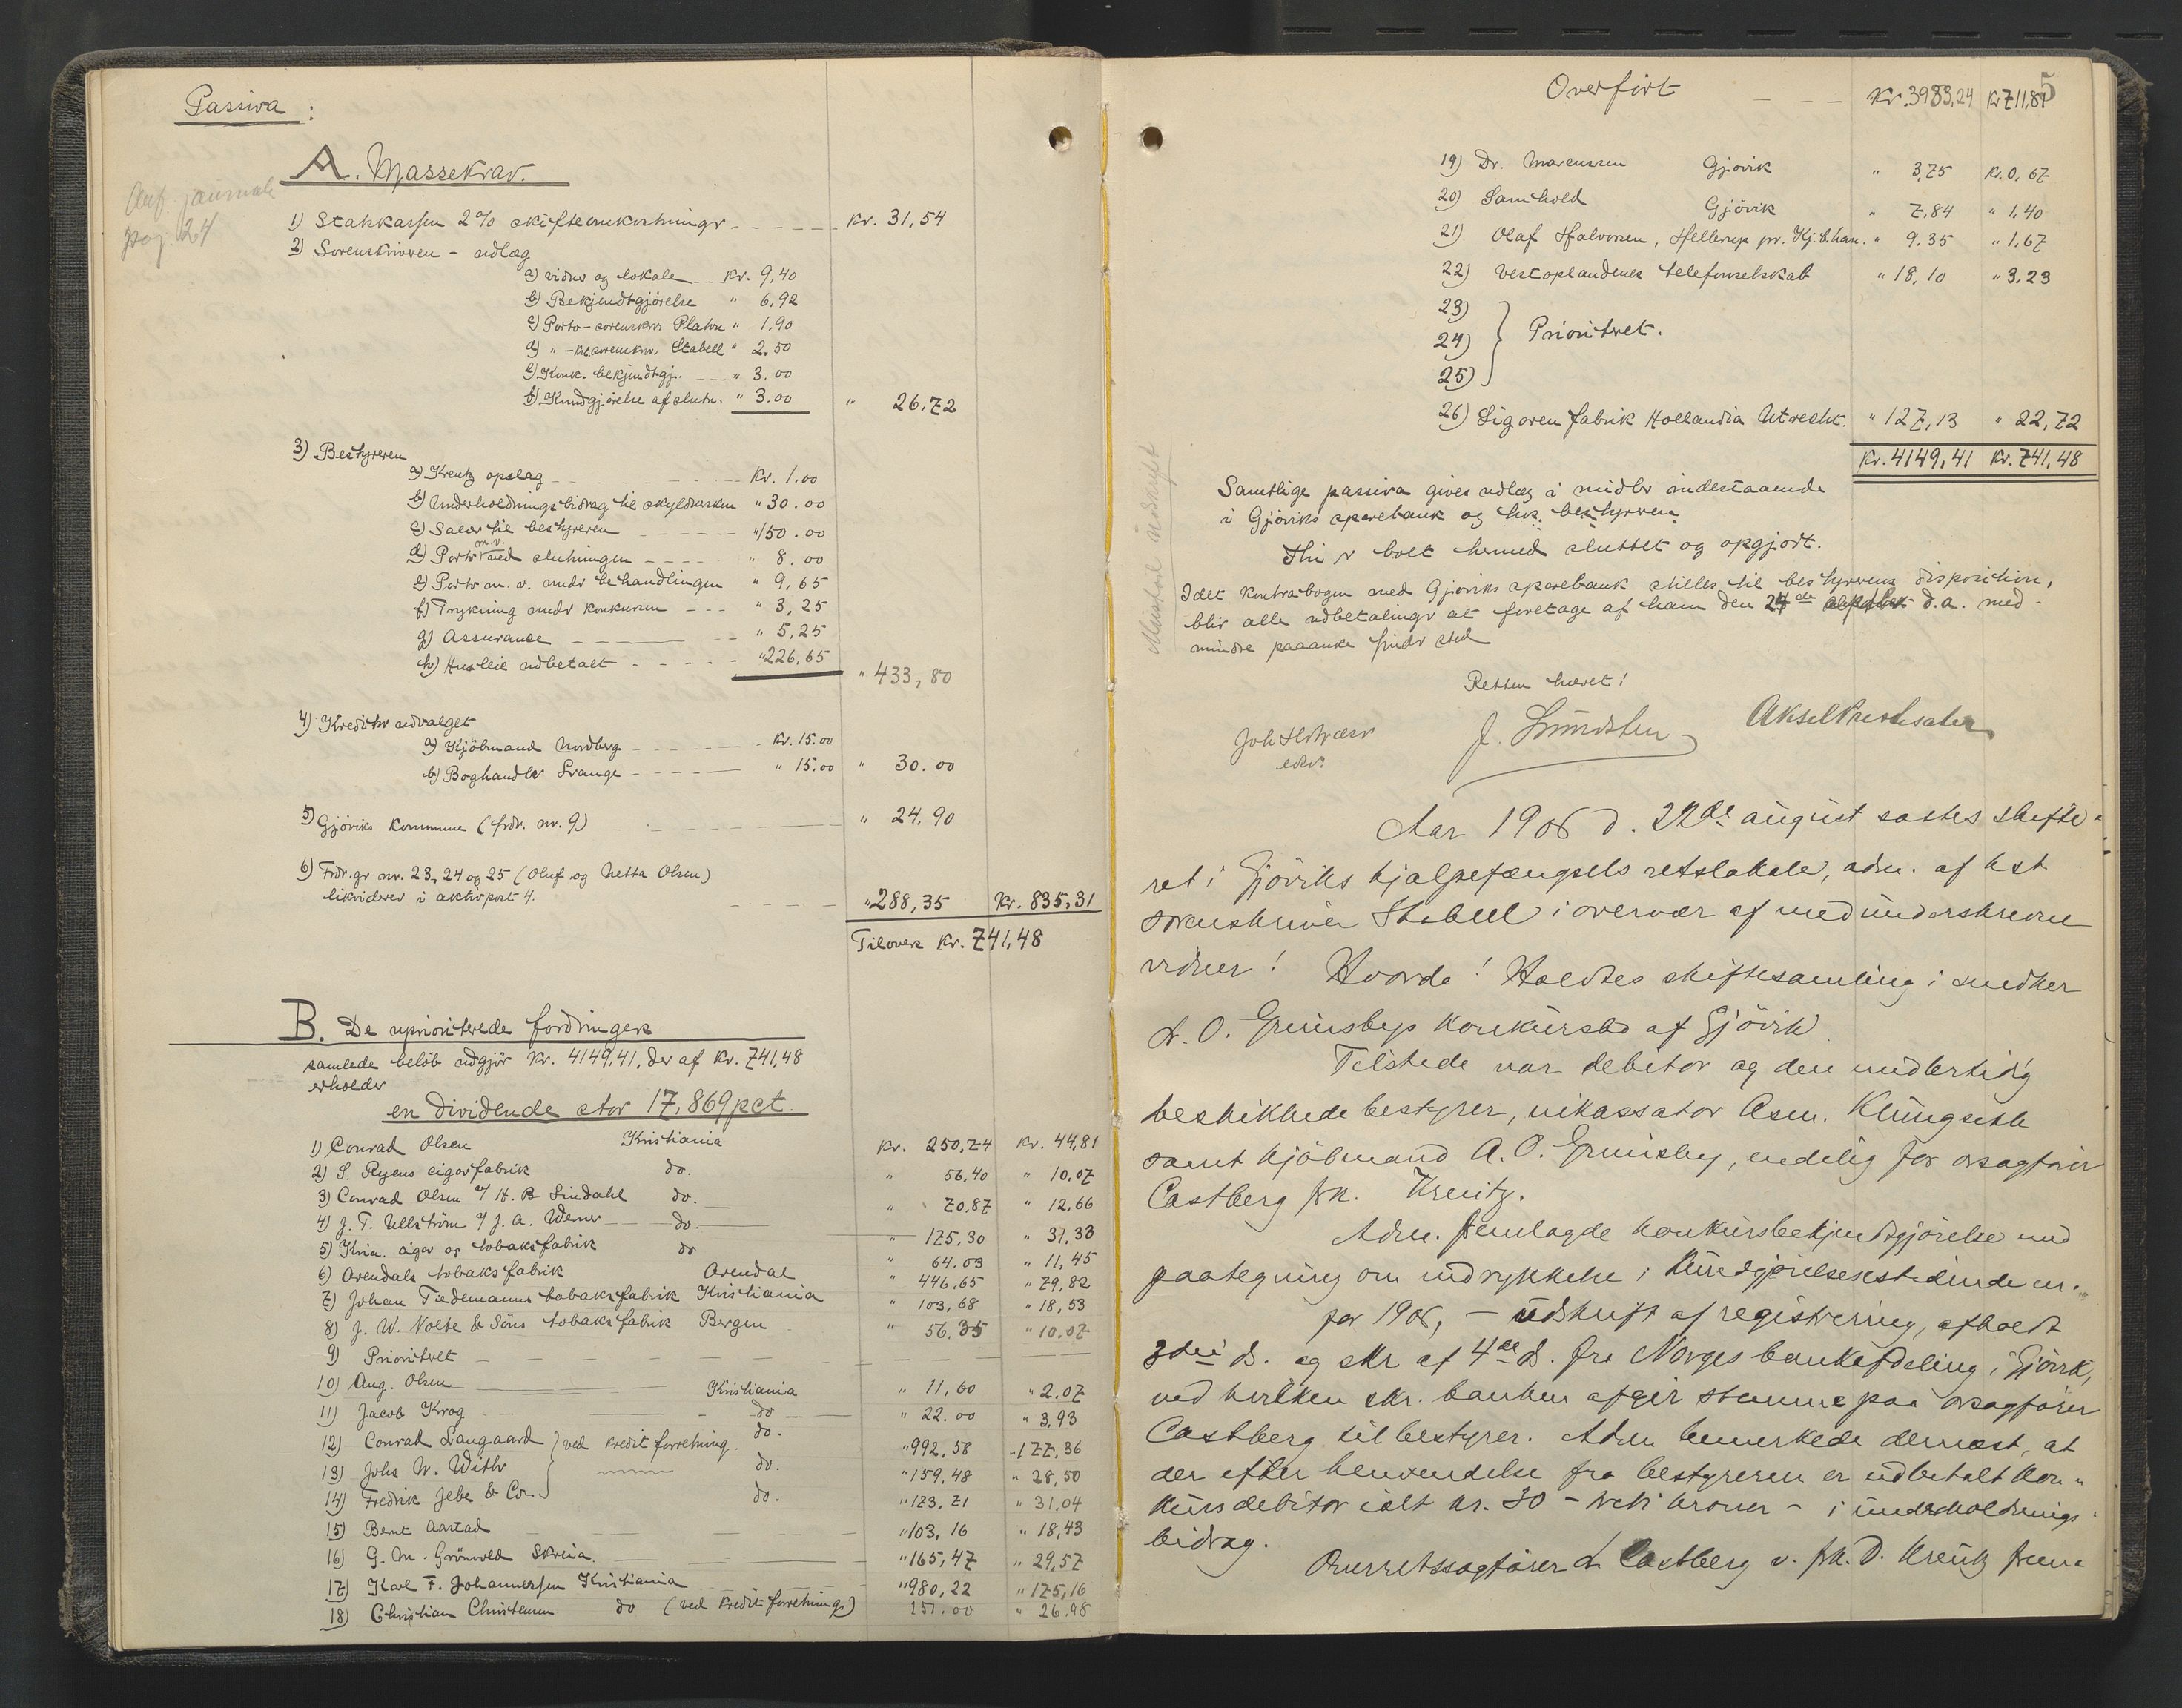 Passiva:
A. Massekrav.
journal
pag. 24
1) Statskassen 2% skifteomkostninger kr. 31,54
2) Sorenskriveren - udlæg
a) vidner og lokale kr. 9,40
b) Bekjendtgjörelse " 6,92
c) Porto - sorenskr. Plahte " 1,90
d) " - kst. sorenskriv. Stabell " 2.50
e) Konk. bekjendtgj. " 3.00
f) Kundgjörelse af slutn. " 3.00 " 26,72
3) Bestyreren
a) Kreutz opslag kr. 1.00
b) Underholdningsbidrag til skyldneren " 30.00
c) Salær til bestyreren " 150.00
d) Porto m.v. ved slutningen " 8.00
e) Porto m.v. under behandlingen " 9,65
f) Trykning under konkursen " 3,25
g) Assurance " 5,25
h) Husleie udbetalt " 226,65 " 433,80
4) Kreditorudvalget
a) Kjöbmand Nordberg kr. 15.00
b) Boghandler Svange " 15.00 " 30.00
5) Gjöviks kommune (fordr. nr. 9) " 24,90
6) Fordr.gr nr. 23, 24 og 25 (Oluf og Netta Olsen)
likvideret i aktivpost 4. " 288,35 Kr. 835,31
Tilovers Kr. 741,48
B. De uprioriterede fordringers
samlede belöb udgjör kr. 4149,41, der af kr. 741,48
erholder
en dividende stor 17,869 pct.
1) Conrad Olsen Kristiania kr. 250,74 kr. 44,81
2) S. Ryens cigarfabrik do. " 56,40 " 10,07
3) Conrad Olsen v/ H. B. Lindahl do. " 70,87 " 12,66
4) J. T. Ullström v/ J. A. Werner do. " 175,30 " 31,33
5) Kria. cigar og tobaksfabrik do " 64.03 " 11,45
6) Arendals tobaksfabrik Arendal " 446,65 " 79,82
7) Johan Tiedemanns tobaksfabrik Kristiania " 103,68 " 18,53
8) J. W. Nolte & Söns tobaksfabrik Bergen " 56.35 " 10.07
9) Prioritert
10) Aug. Olsen Kristiania " 11,60 " 2.07
11) Jacob Krog do " 22.00 " 3,93
12) Conrad Langaard } ved kreditforretning. do. " 992,58 " 177,36
13) Johs N. Withr do. " 159,48 " 28,50
14) Fredrik Jebe & Co. do. " 173,71 " 31,04
15) Bernt Aastad " 103,16 " 18,43
16) G. M. Grönvold Skreia " 165,47 " 29,57
17) Karl F. Johannessen Kristiania " 980,22 " 175,16
18) Christian Christensen do (ved kreditforretnings) 151.00 " 26.98
5
Overfört kr. 3983,24 kr 711,81
19) Dr. Marcussen Gjövik " 3,75 kr. 0,67
20) Samhold Gjövik " 7,84 " 1,40
21) Olaf Halvorsen, Hellerup pr. Kj.b.havn. " 9.35 " 1,67
22) Vestoplandenes telefonselskab " 18,10 " 3,23
23)
24) } Prioritert.
25)
26) Sigarenfabrik Hollandia Utrecht. " 127,13 " 22,72
kr. 4149,41 kr. 741,48
udskrift
Samtlige passiva gives udlæg i midler indestaaende
i Gjöviks sparebank og hos bestyreren.
Thi er boet hermed sluttet og opgjort.
Idet kontrabogen med Gjöviks sparebank stilles til bestyrerens disposition,
blir alle udbetalinger at foretage af ham den 24de d.a. med
mindre paaanke finder sted
Retten hævet!
J. Lundsten
Aar 1906 d. 22de august sattes skifte-
ret i Gjöviks hjælpefængsels retslokale, adm. af kst
sorenskriver Stabell i overvær af medunderskrevne
vidner! Hvorda! Holdtes skiftesamling i snedker
A. O. Grimsbys konkursbo af Gjövik.
Tilstede var debitor og den midlertidig
beskikkede bestyrer, inkassator Asm. Klungseth
samt kjöbmand A. O. Grimsby, endelig for orsagförer
Castberg frk. Kreutz.
Adm. fremlagde konkursbekjendtgjörelse med
paategning om indrykkelse i Kundgjörelsestidende nr.
for 1906, - udskrift af registrering, afholdt
3die ds. og skr af 4de ds. fra Norges bankafdeling i Gjövik,
ved hvilken skr. banken afgir stemme paa orsagförer
Castberg til bestyrer. Adm bemerkede dernæst, at
der efter henvendelse fra bestyreren er udbetalt kon-
kursdebitor ialt kr. 30 - treti kroner - i underholdnings-
bidrag.
Overretssagförer Castberg v. frk. D. Kreutz frem-